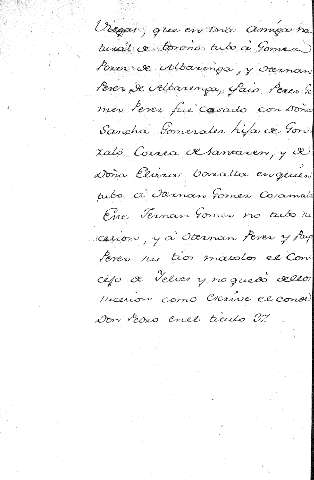 Vregas, que en una Amiga na
tural de Loroño tubo à Gomez
Perez de Albarenga, y Hernan
Perez de Albarenga, Gº
mez Perez fue Casado con Doña
Sancha Gomerales hija de Gon
zalo Correa de Santaren, y de
Doña Elvira Gonzalez en quien
tubo à Hernan Gomez
Este Fernan Gomez no tubo su
cesion, y à Hernan Perez y Ruy
Perez sus tios matolos el Con
cejo de Telves y no quedò de ellos
sucesion como escrive el conde
Don Pedro en el titulo 27